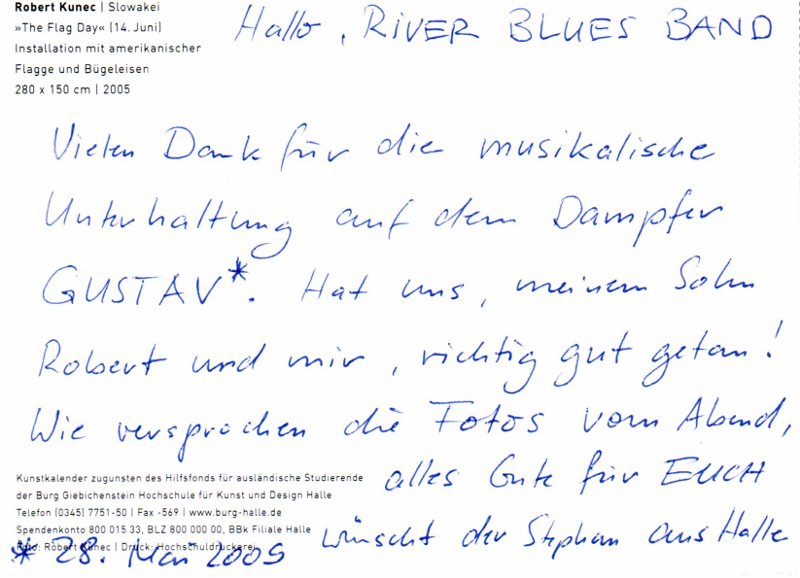 Robert Kunec | Slowakei
»The Flag Day« (14. Juni)
Installation mit amerikanischer
Flagge und Bügeleisen
280 x 150 cm | 2005
Hallo, RIVER BLUES BAND
Vielen Dank für die musikalische
Unterhaltung auf dem Dampfer
GUSTAV*. Hat uns, meinem Sohn
Robert und mir, richtig gut getan!
Wie versprochen die Fotos vom Abend,
alles Gute für EUCH
wünscht der Stephan aus Halle
Kunstkalender zugunsten des Hilfsfonds für ausländische Studierende
der Burg Giebichenstein Hochschule für Kunst und Design Halle
Telefon (0345) 7751-50 | Fax -569 | www.burg-halle.de
Spendenkonto 800 015 33, BLZ 800 000 00, BBk Filiale Halle
Foto: Robert Kunec | Druck: Hochschuldruckerei
* 28. Mai 2009